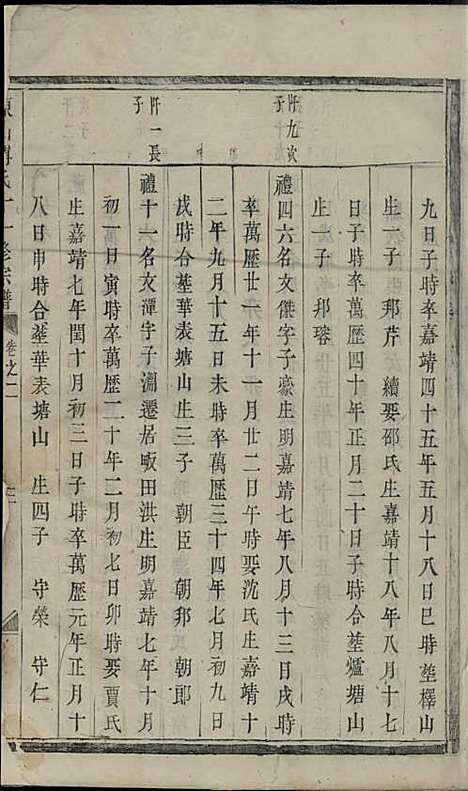 九日子時卒嘉靖四十五年五月十八日巳時塟檡山
生一子 邦芹 續娶邵氏生嘉靖十八年八月十七
日子時卒萬歷四十年正月二十日子時合塟爐塘山
生一子 邦瑢
阡九次子
禮四六名文傑字子豪生明嘉靖七年八月十三日戌時
卒萬歷廿一年十一月廿二日午時娶沈氏生嘉靖十
二年九月十五日未時卒萬歷三十四年七月初九日
戌時合塟華表塘山生三子 朝臣 朝邦 朝郎
阡一長子
禮十一名文潭字子淵遷居畈田洪生明嘉靖七年十月
初一日寅時卒萬歷二十年二月初七日卯時娶賈氏
生嘉靖七年閏十月初三日子時卒萬歷元年正月十
八日申時合塟華表塘山 生四子 守榮 守仁
氏十一修宗譜 卷之二